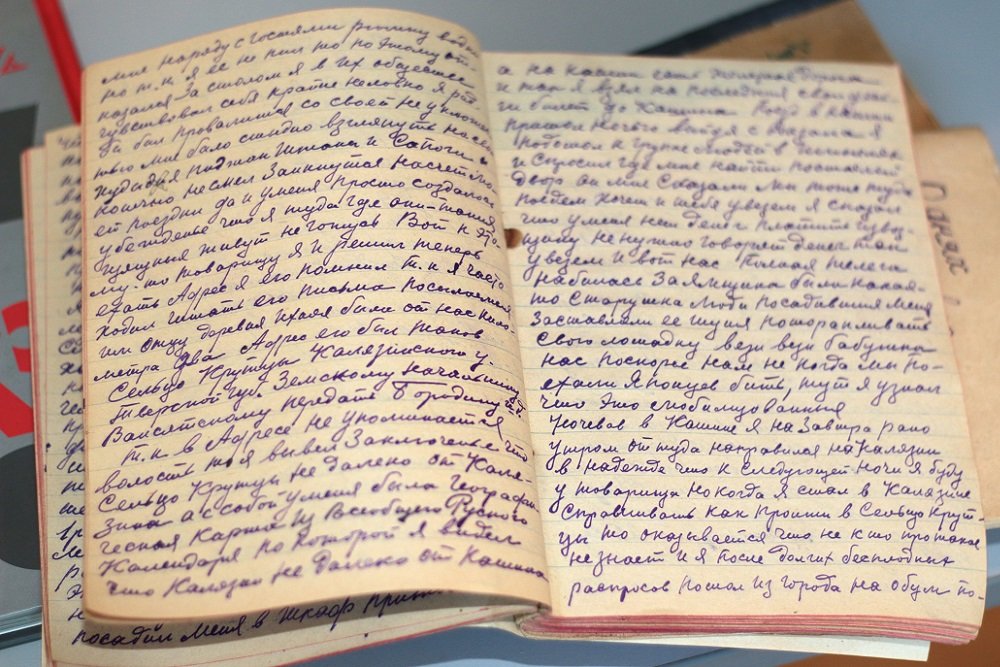 мне наряду с гостями рюмку водки
но т.к я ее не пил то по этому от
казался За столом я в их обществе
чувствовал себя крайне неловко я рад
бы был провалится со своей неуклюжес
тью мне было стыдно взглянуть на свои
худые пиджак Штаны и Сапоги и
конечно не смел Заикнутся насчет мо
ей поездки да и у меня просто создалось
убежденье что я туда где они
живут не гожусь Вот к это
му-то товарищу я и решил теперь
ехать Адрес я его помнил т.к я часто
ходил читать его письма посылаемые
им отцу деревня ихняя была от нас кило
метра два Адрес его был таков
Сельцо Крутцы Калязинского у.
Тверской губ. Земскому начальнику
передать Бородину
т.к в Адресе не упоминается
волость то я вывел Заключенье что
Сельцо Крутцы не далеко от Каля
зина а с собой у меня была географи
ческая Карта из Всеобщего Русского
Календаря по которой я видел
что Калязин не далеко от Кашина
посадил меня в шкаф
а на Кашин есть железная дорога
и так я взял на последния свои день
ги билет до Кашина Поезд в Кашин
пришол ночью выйдя с вокзала я
подошел к группе людей в
и Спросил где мне найти постоялый
двор он мне Сказали мы тоже туда
поедем хочеш и тебя увезем я сказал
что у меня нет денег платить извоз
щику не нужно говорят денег так
увезем и вот нас полная телега
набилась За Ямщика была какая
то Старушка Люди посадившия меня
Заставляли ее шутя поторапливать
свою лошадку вези вези бабушка
нас поскорее нам не когда мы по-
ехали Японцев бить, тут я узнал
что это мобилизованныя
Ночевав в Кашине я на Завтра рано
утром от туда направился на Калязин
в надежде что к следующей ночи я буду
у товарища но когда я стал в Калязине
Справливать как пройти в Сельцо Крут-
цы то оказывается что не кто про такое
не знает и я после долгих бесплодных
распросов пошал из города на обум по-